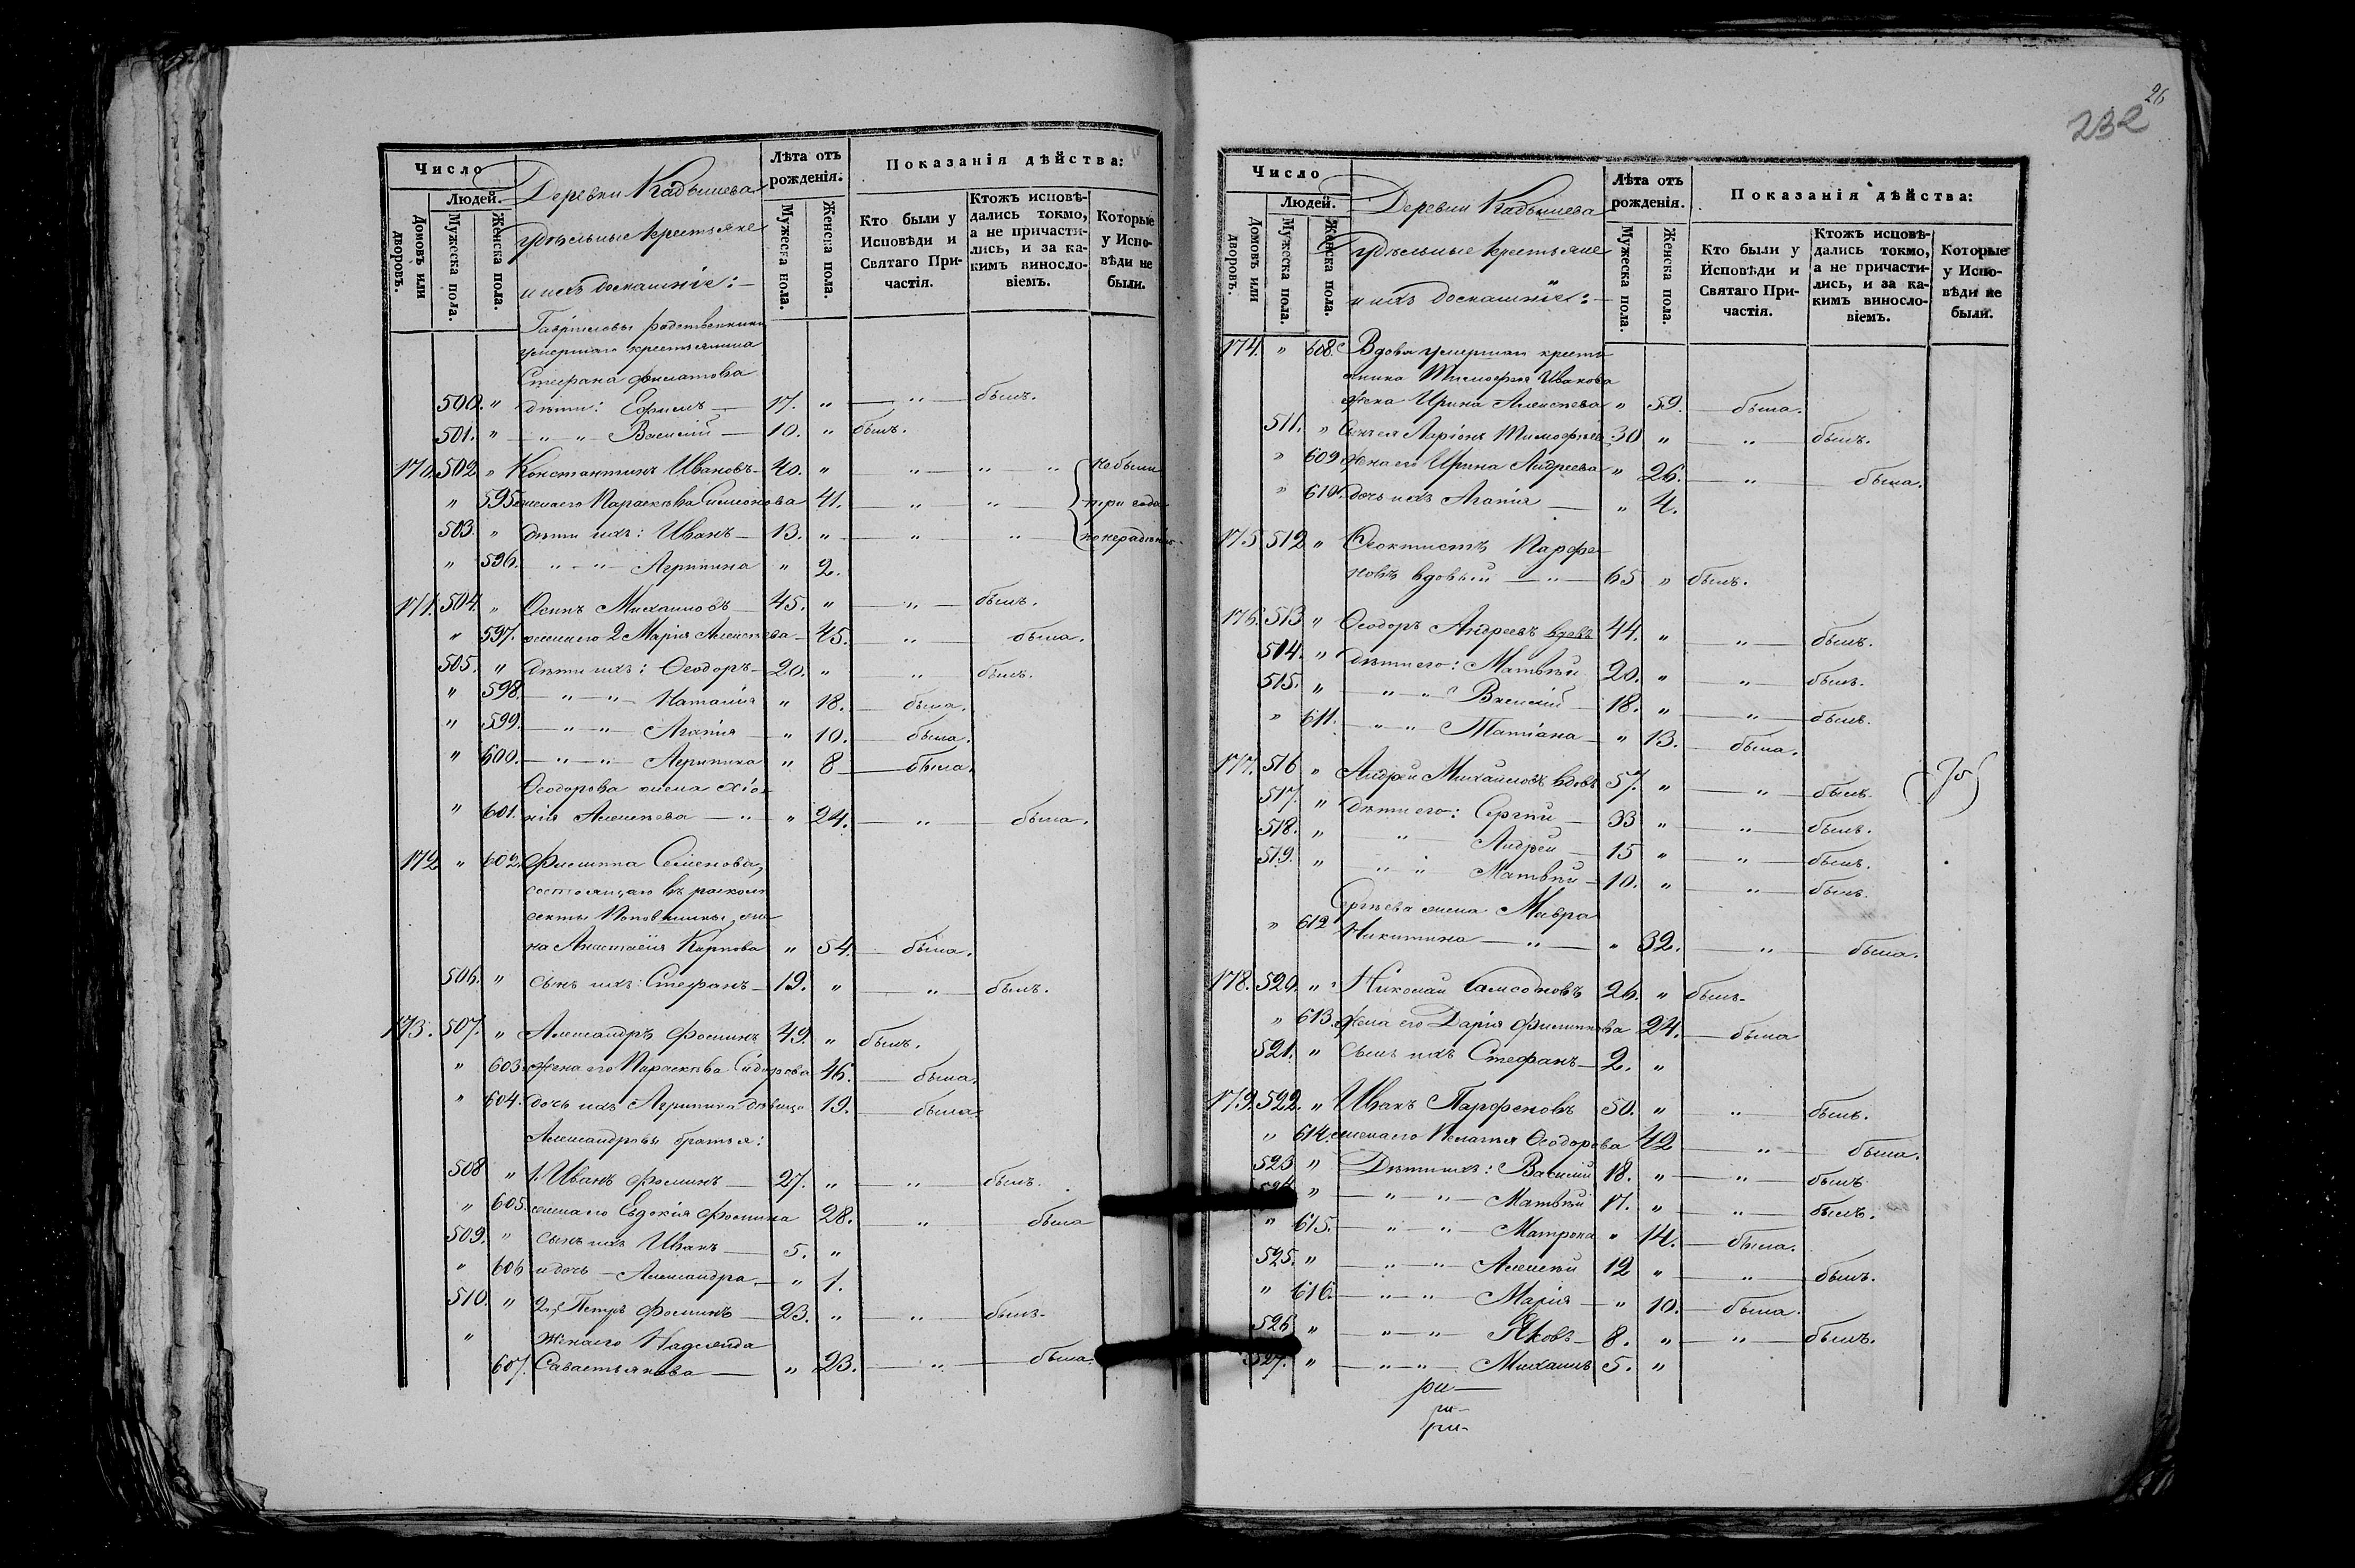 26
232
Число
Людей.
Домовъ или дворовъ.
Мужеска пола.
Женска пола.
Деревни Кадышева
удѣльные крестьяне
и ихъ домашніе:
Лѣта отъ рожденія.
Мужеска пола.
Женска пола.
Показанія дѣйства:
Кто были у Исповѣди и Святаго Причастія.
Ктожъ исповѣдались токмо, а не причастились, и за какимъ винословіемъ.
Которые у Исповѣди не были.
Гаврилловы родственники
умершаго крестьянина
Стефана Филатова
500. " дѣти: Ефимъ — 17. " — " — былъ.
501. " — " — " — Василій — 10. " былъ.
170. 502 " Константинъ Ивановъ — 40. " " " " не были
" 595 жена его Параскѣва Симеонова 41. — " — " — три года
503. " дѣти ихъ: Иванъ — 13. " — " — " — по нерадѣнію
" 596. — " — " — Агрипина " 2.
171. 504. " Осипъ Михайловъ — 45. " — " — былъ.
" 597. жена его 2 Марія Алексѣева — 45. — " — была.
505. " дѣти ихъ: Ѳеодоръ — 20. " — " — былъ.
" 598. — " — " — Наталія " 18. — была.
" 599. — " — " — Агапія — " 10. — была.
" 600. — " — " — Агрипина " 8 — была.
Ѳеодорова жена Хіо-
" 601. нія Алексѣева — " — " 24. — " — была.
172 " 602. Филиппа Семенова,
состоящаго въ расколѣ
секты Поповщины, же-
на Анастасія Карпова " 54. — была.
506. " сынъ ихъ: Стефанъ — 19. " — " — былъ.
173. 507. " Александръ Фоминъ 49. " былъ.
" 603. Жена его Параскѣва Сидорова 46. — была.
" 604. дочь ихъ Агрипина дѣвица 19. — была.
Александровы братья:
508 " 1. Иванъ Фоминъ — 27. " — " — былъ.
" 605. жена его Евдокія Фомина 28. — " — была
509. " сынъ ихъ Иванъ — 5. "
" 606 и дочь — Александра — " 1.
510. " 2. Петръ Фоминъ — 23. " — " — былъ.
" Жена его Надежда
607. Савастьянова — " 23. — " — была.
Число
Людей.
Домовъ или дворовъ.
Мужеска пола.
Женска пола.
Деревни Кадышева
удѣльные крестьяне
и ихъ домашніе:
Лѣта отъ рожденія.
Мужеска пола.
Женска пола.
Показанія дѣйства:
Кто были у Исповѣди и Святаго Причастія.
Ктожъ исповѣдались токмо, а не причастились, и за какимъ винословіемъ.
Которые у Исповѣди не были.
174. " 608. Вдова умершаго кресть-
янина Тимофея Иванова
Жена Ирина Алексѣева " 59. — была.
511. " Сынъ ея Ларіонъ Тимофѣевъ 30 " — " — былъ.
" 609 Жена его Ирина Андреева " 26. — " — была.
" 610. дочь ихъ Агапія — " 4.
175 512 " Ѳеоктистъ Парфе-
новъ вдовый — " — 65 " былъ.
176. 513 " Ѳеодоръ Андреевъ вдовъ 44. " — " — былъ.
514. " дѣти его: Матвѣй 20. " — " — былъ.
515. " — " — " Василій — 18. " — " — былъ.
" 611. — " — " Татіана — " 13. — была.
177. 516 " Андрей Михайловъ вдовъ 57. " — " — былъ.
517. " дѣти его: Сергѣй — 33 " — " — былъ.
518. " " — Андрей — 15 " — " — былъ.
519. " " " — Матвѣй — 10. " — " — былъ.
Сергѣева жена Мавра
" 612 Никитина — " — " 32. — " — была.
178. 520. " Николай Самсоновъ 26. " былъ.
" 613. Жена его Дарія Филиппова 24. — была
521. " сынъ ихъ Стефанъ — 2. "
179. 522. " Иванъ Парфеновъ 50. " " — былъ.
" 614. жена его Пелагія Ѳеодорова 42 — " — была.
523 " Дѣти ихъ: Василій 18. " — " — былъ.
524 " — " — " — Матвѣй 17. " — " — былъ.
" 615. — " — " — Матрона " 14. — была.
525. " — " — " — Алексѣй 12 " — " — былъ.
" 616. — " — " — Марія — " 10. — была.
526 " — " — " — Яковъ — 8. " — " — былъ.
527. " — " — " — Михаилъ 5. "